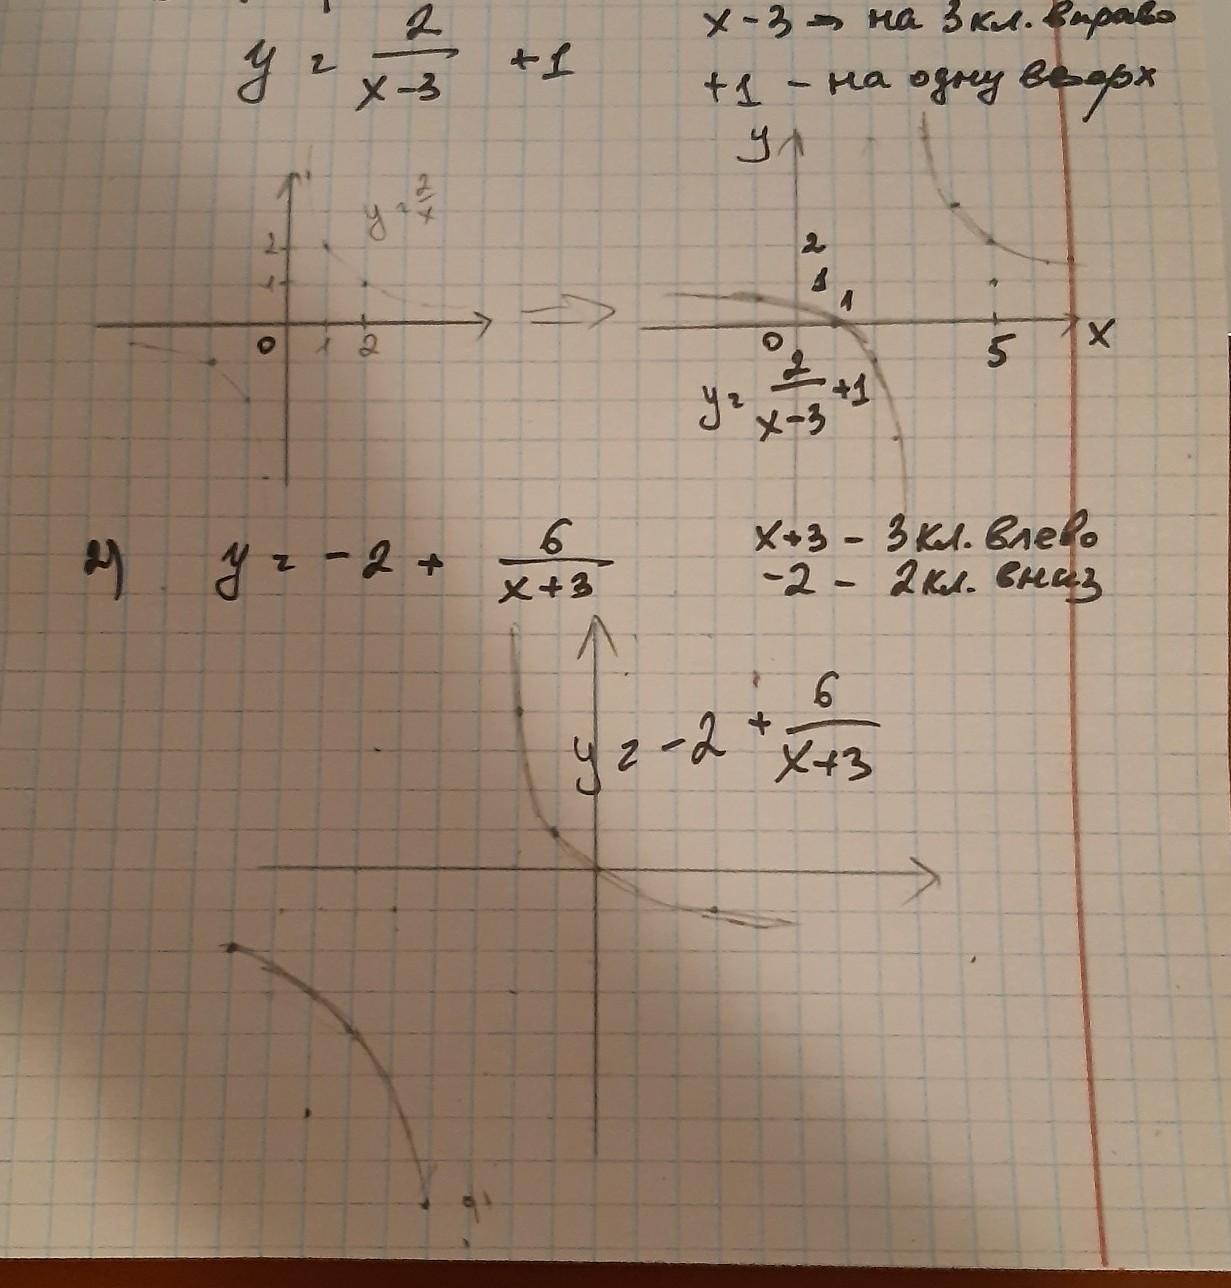 y = 2/(x-3) +1
x-3 → на 3кл. вправо
+1 - на одну вверх
y = 2/x
2
1
0 1 2
y
2
1
1
0 5 x
y= 2/(x-3) +1
2) y = -2 + 6/(x+3)
x+3 - 3кл. влево
-2 - 2кл. вниз
y = -2 + 6/(x+3)